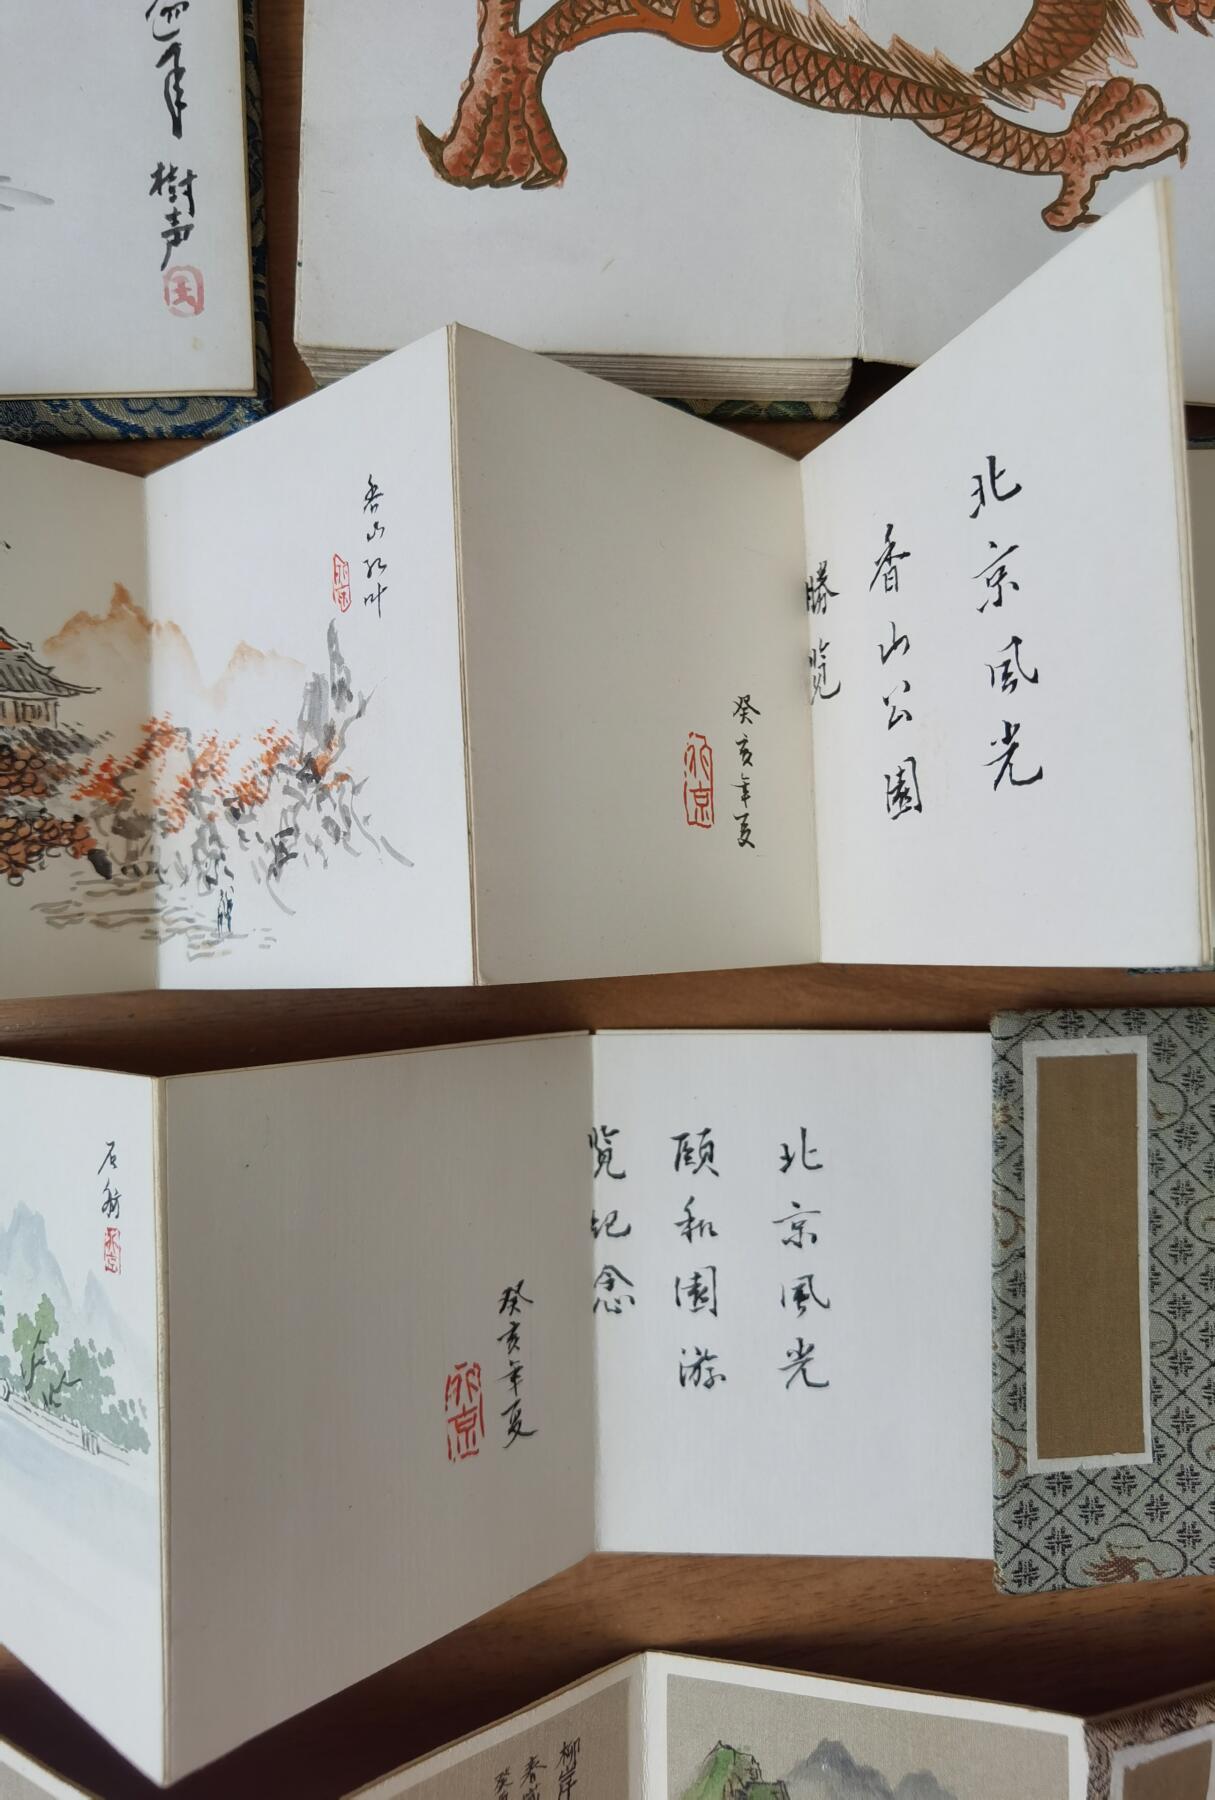 年
樹声
北京风光
香山公園
勝览
癸亥年夏
香山红叶
北京風光
頤和園游
览纪念
癸亥年夏
石舫
柳岸
春
癸